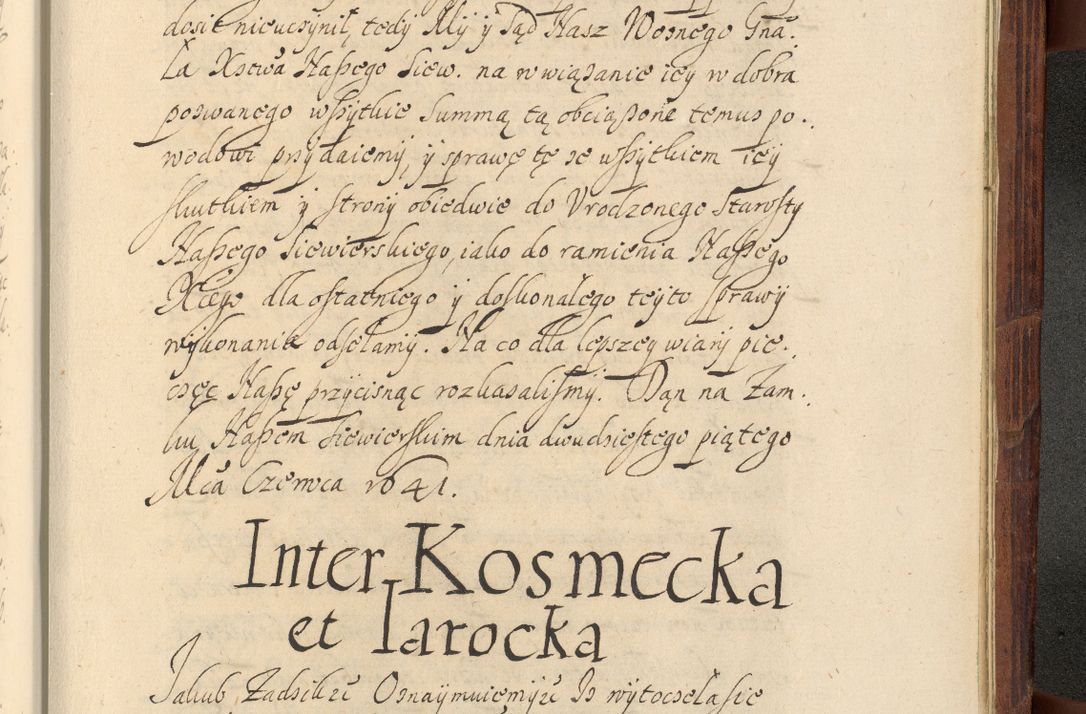 dosic nieuczynił, tedy My y Sąd Nasz Woznego Gna:
la Xstwa Naszego Siew. na w wiązanie iey w dobra
pozwanego wszytkie Summą tą obciązone temuz po.
wodowi przydaiemy, y sprawę tę ze wszytkiem iey
skutkiem y strony obiedwie do Vrodzonego Starosty
Naszego Siewierskiego, iako do ramienia Naszego
Xcego dla ostatniego y doskonałego teyto sprawy
wykonanie odsełamy. Na co dla lepszey wiary pie.
częc Naszę przycisnąc rozkazalismy. Dan na Zam.
ku Naszem Siewierskim dnia dwudziestego piątego
Mca Czerwca 1641.
Inter Kosmecka
et Iarocka
Jakub Zadzikzc Oznaymuiemyzc Iz wytoczelasie